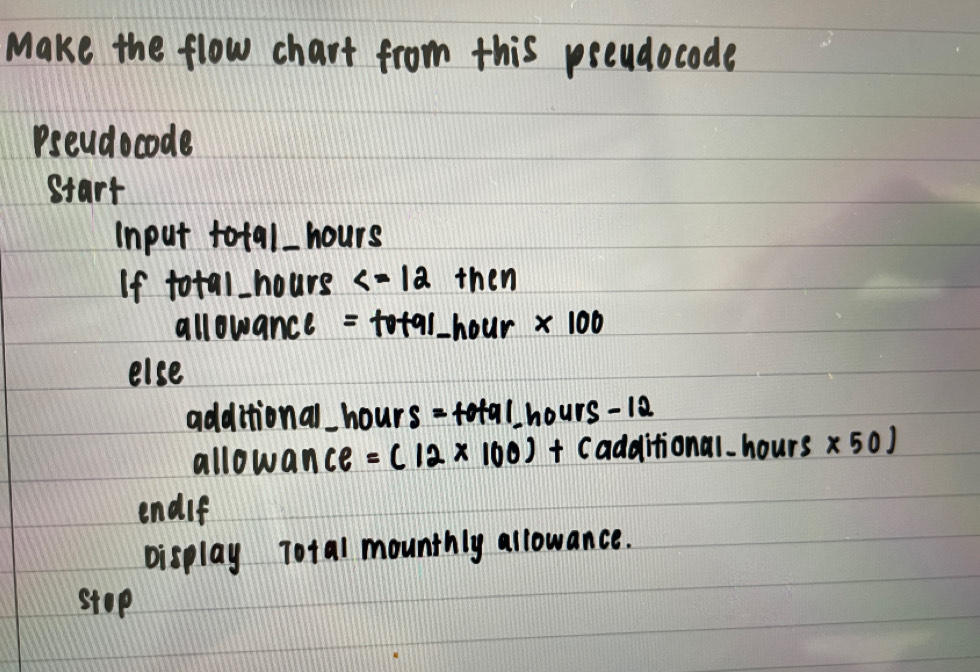 Make the flow chart from this pseudocode
Pseudocode
Start
Input total_hours
If total_hours <= 12 then
allowance = total_hour × 100
else
additional_hours = total_hours - 12
allowance = ( 12 × 100 ) + ( additional_hours × 50 )
endif
Display Total mounthly allowance.
Stop